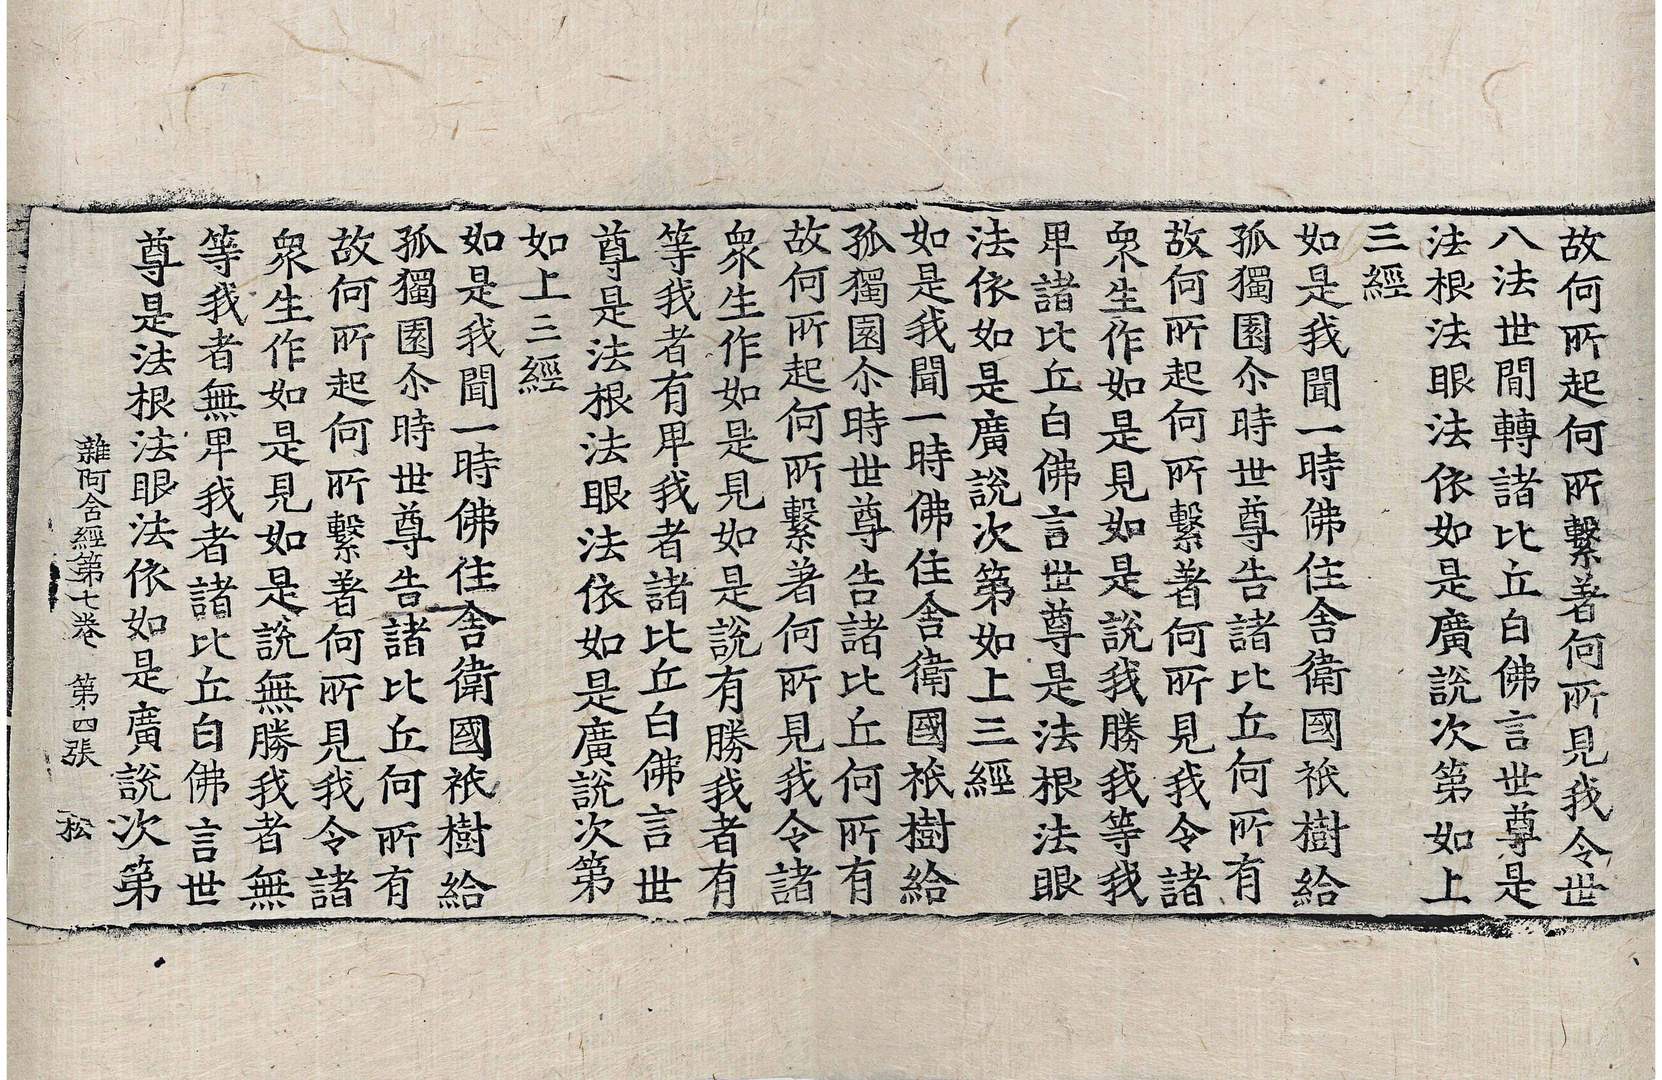 故何所起何所繫著何所見我令世
八法世間轉諸比丘白佛言世尊是
法根法眼法依如是廣說次第如上
三經
如是我聞一時佛住舍衛國祇樹給
孤獨園尒時世尊告諸比丘何所有
故何所起何所繫著何所見我令諸
衆生作如是見如是說我勝我等我
卑諸比丘白佛言世尊是法根法眼
法依如是廣說次第如上三經
如是我聞一時佛住舍衛國祇樹給
孤獨園尒時世尊告諸比丘何所有
故何所起何所繫著何所見我令諸
衆生作如是見如是說有勝我者有
等我者有卑我者諸比丘白佛言世
尊是法根法眼法依如是廣說次第
如上三經
如是我聞一時佛住舍衛國祇樹給
孤獨園尒時世尊告諸比丘何所有
故何所起何所繫著何所見我令諸
衆生作如是見如是說無勝我者無
等我者無卑我者諸比丘白佛言世
尊是法根法眼法依如是廣說次第
雜阿含經第七卷 第四張 松